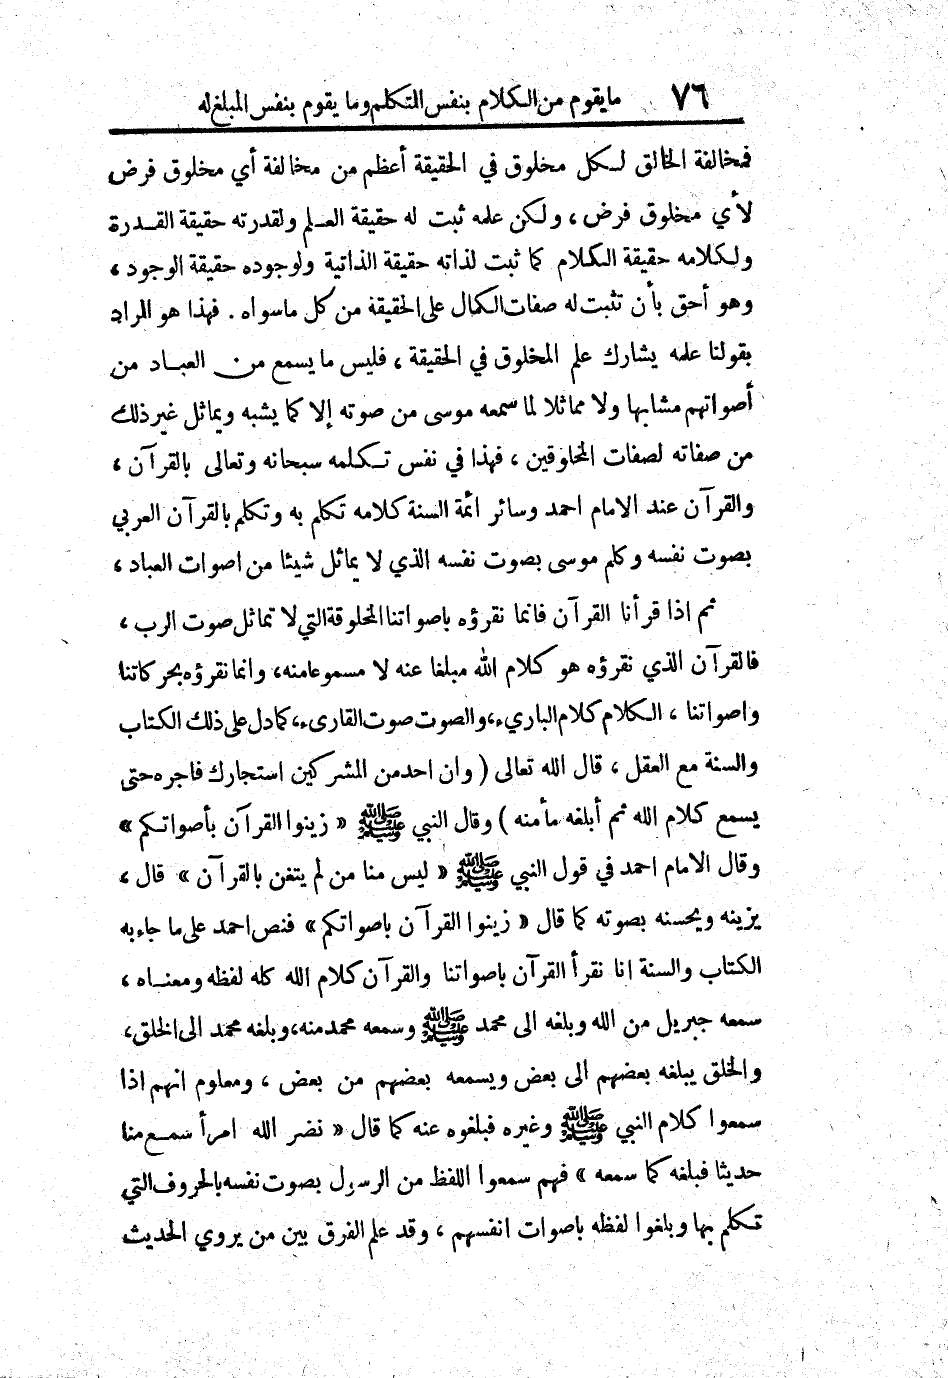 ٧٦ ما يقوم من الكلام بنفس المتكلم وما يقوم بنفس المبلغ له
فمخالفة الخالق لكل مخلوق في الحقيقة أعظم من مخالفة أي مخلوق فرض
لأي مخلوق فرض ، ولكن علمه ثبت له حقيقة العلم ولقدرته حقيقة القدرة
ولكلامه حقيقة الكلام كما ثبت لذاته حقيقة الذاتية ولوجوده حقيقة الوجود ،
وهو أحق بأن تثبت له صفات الكمال على الحقيقة من كل ماسواه . فهذا هو المراد
بقولنا علمه يشارك علم المخلوق في الحقيقة ، فليس ما يسمع من العباد من
أصواتهم مشابها ولا مماثلا لما سمعه موسى من صوته إلا كما يشبه ويماثل غير ذلك
من صفاته لصفات المخلوقين ، فهذا في نفس تكلمه سبحانه وتعالى بالقرآن ،
والقرآن عند الامام احمد وسائر ائمة السنة كلامه تكلم به وتكلم بالقرآن العربي
بصوت نفسه وكلم موسى بصوت نفسه الذي لا يماثل شيئا من اصوات العباد ،
ثم اذا قرأنا القرآن فانما نقرؤه باصواتنا المخلوقة التي لا تماثل صوت الرب ،
فالقرآن الذي نقرؤه هو كلام الله مبلغا عنه لا مسموعا منه، وانما نقرؤه بحركاتنا
واصواتنا ، الكلام كلام الباريء، والصوت صوت القارىء، كما دل على ذلك الكتاب
والسنة مع العقل ، قال الله تعالى ( وان احد من المشركين استجارك فاجره حتى
يسمع كلام الله ثم أبلغه مأمنه ) وقال النبي ﷺ « زينوا القرآن بأصواتكم »
وقال الامام احمد في قول النبي ﷺ « ليس منا من لم يتغن بالقرآن » قال ،
يزينه ويحسنه بصوته كما قال « زينوا القرآن باصواتكم » فنص احمد على ما جاء به
الكتاب والسنة انا نقرأ القرآن باصواتنا والقرآن كلام الله كله لفظه ومعناه ،
سمعه جبريل من الله وبلغه الى محمد ﷺ وسمعه محمد منه، وبلغه محمد الى الخلق،
والخلق يبلغه بعضهم الى بعض ويسمعه بعضهم من بعض ، ومعلوم انهم اذا
سمعوا كلام النبي ﷺ وغيره فبلغوه عنه كما قال « نضر الله امرأ سمع منا
حديثا فبلغه كما سمعه » فهم سمعوا اللفظ من الرسول بصوت نفسه بالحروف التي
تكلم بها وبلغوا لفظه باصوات انفسهم ، وقد علم الفرق بين من يروي الحديث